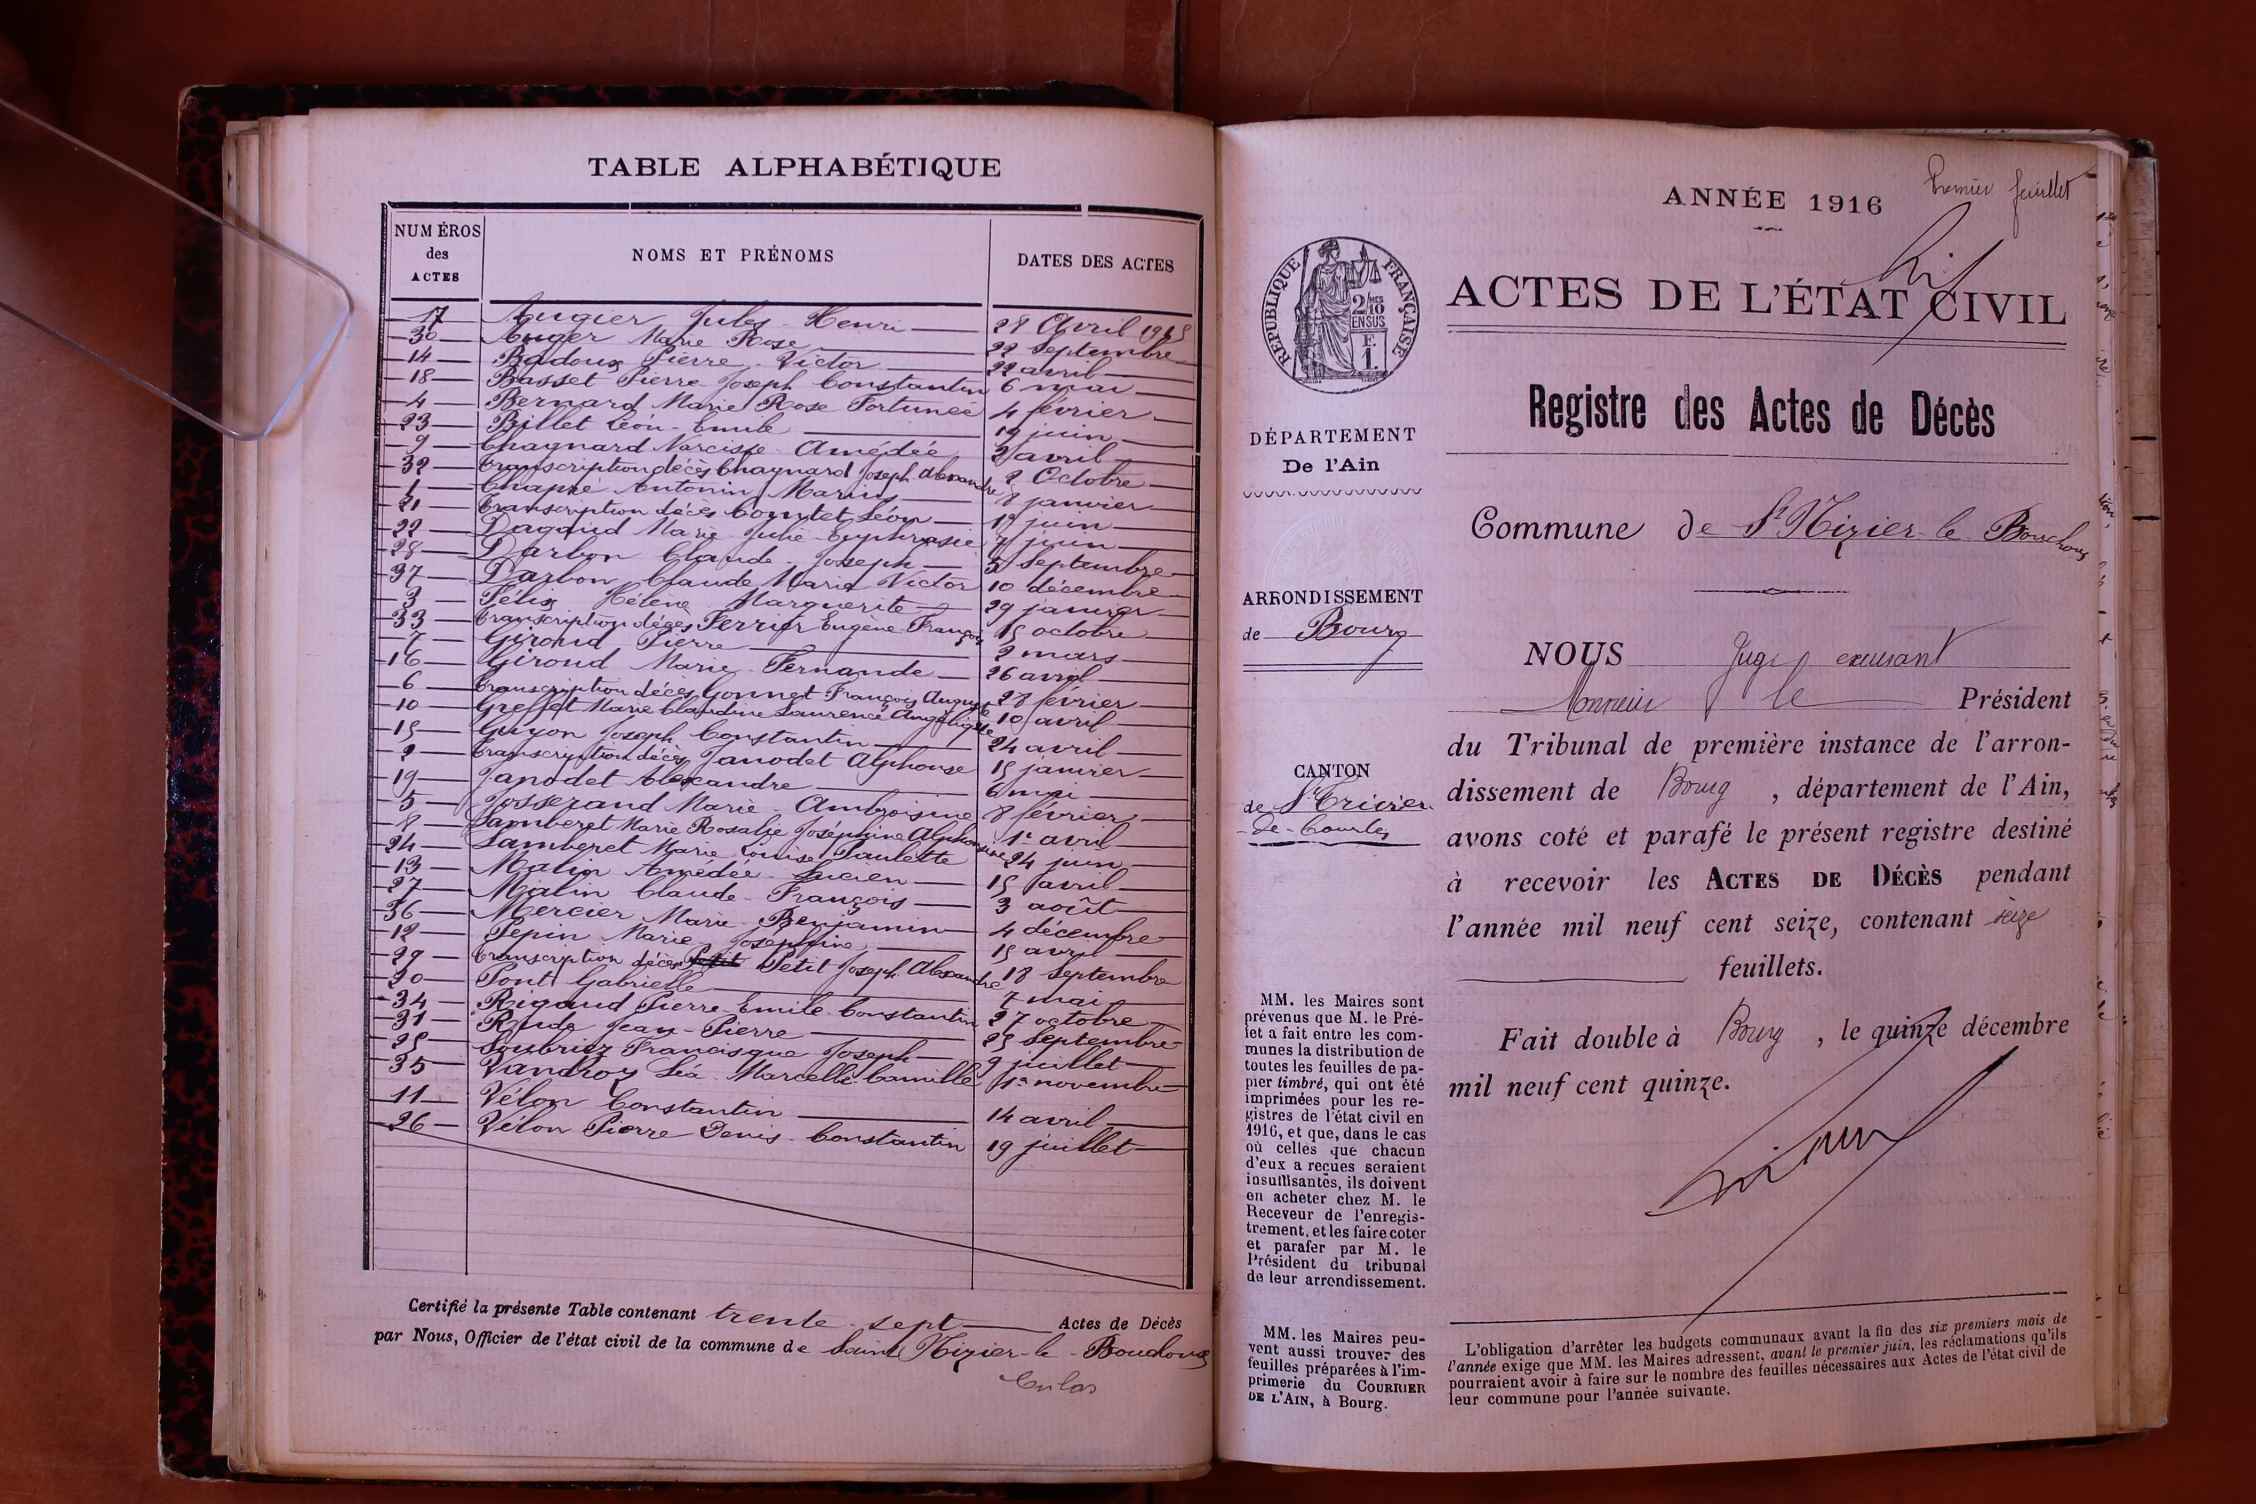 TABLE ALPHABÉTIQUE
NUMÉROS des ACTES
NOMS ET PRÉNOMS
DATES DES ACTES
17 Augier Jules Henri 28 Avril 1915
30 Auger Marie Rose 22 septembre
14 Badoux Pierre Victor 22 avril
18 Basset Pierre Joseph Constantin 6 mai
4 Bernard Marie Rose Fortunée 4 février
23 Billet Léon Emile 19 juin
9 Chagnard Narcisse Amédée 2 avril
32 Transcription décès Chagnard Joseph Alexandre 2 Octobre
1 Chapré Antonin Marius 8 janvier
21 Transcription décès Comtet Léon juin
22 Dagaud Marie Julie Euphrasie 7 juin
28 Darbon Claude Joseph 5 septembre
37 Darbon Claude Marie Victor 10 décembre
3 Félix Hélène Marguerite 29 janvier
33 Transcription décès Ferrier Eugène François 15 octobre
7 Giroud Pierre 2 mars
16 Giroud Marie Fernande 26 avril
6 Transcription décès Gonnet François Auguste 28 février
10 Greffet Marie Claudine Laurence Angélique 10 avril
15 Guyon Joseph Constantin 24 avril
2 Transcription décès Janodet Alphonse 15 janvier
19 Janodet Alexandre 6 mai
5 Josserand Marie Ambroisine 8 février
8 Lamberet Marie Rosalie Joséphine Alphonsine 1er avril
24 Lamberet Marie Louise Paulette 24 juin
13 Malin Amédée Lucien 15 avril
27 Malin Claude François 3 août
36 Mercier Marie Benjamin 4 décembre
12 Pepin Marie Joséphine 15 avril
29 Transcription décès Petit Petit Joseph Alexandre 18 septembre
20 Pont Gabrielle 7 mai
34 Rigaud Pierre Emile Constantin 27 octobre
31 Rude Jean-Pierre 25 septembre
25 Soubriez Francisque Joseph 9 juillet
35 Vandroy Léa Marcelle Camille 1er novembre
11 Vélon Constantin 14 avril
26 Vélon Pierre Denis Constantin 19 juillet
Certifié la présente Table contenant trente-sept Actes de Décès
par Nous, Officier de l'état civil de la commune de Saint Nizier-le-Bouchoux
Premier feuillet
ANNÉE 1916
ACTES DE L'ÉTAT CIVIL
RÉPUBLIQUE FRANÇAISE
2/10
EN SUS
F.
1.
Registre des Actes de Décès
DÉPARTEMENT
De l'Ain
Commune de St Nizier-le-Bouchoux
ARRONDISSEMENT
de Bourg
CANTON
de St Trivier-
-de-Courtes
NOUS Juge excusant
Monsieur le Président
du Tribunal de première instance de l'arron-
dissement de Bourg, département de l'Ain,
avons coté et parafé le présent registre destiné
à recevoir les ACTES DE DÉCÈS pendant
l'année mil neuf cent seize, contenant seize
feuillets.
Fait double à Bourg, le quinze décembre
mil neuf cent quinze.
MM. les Maires sont
prévenus que M. le Pré-
fet a fait entre les com-
munes la distribution de
toutes les feuilles de pa-
pier timbré, qui ont été
imprimées pour les re-
gistres de l'état civil en
1916, et que, dans le cas
où celles que chacun
d'eux a reçues seraient
insuffisantes, ils doivent
en acheter chez M. le
Receveur de l'enregis-
trement, et les faire coter
et parafer par M. le
Président du tribunal
de leur arrondissement.
MM. les Maires peu-
vent aussi trouver des
feuilles préparées à l'im-
primerie du COURRIER
DE L'AIN, à Bourg.
L'obligation d'arrêter les budgets communaux avant la fin des six premiers mois de
l'année exige que MM. les Maires adressent, avant le premier juin, les réclamations qu'ils
pourraient avoir à faire sur le nombre des feuilles nécessaires aux Actes de l'état civil de
leur commune pour l'année suivante.